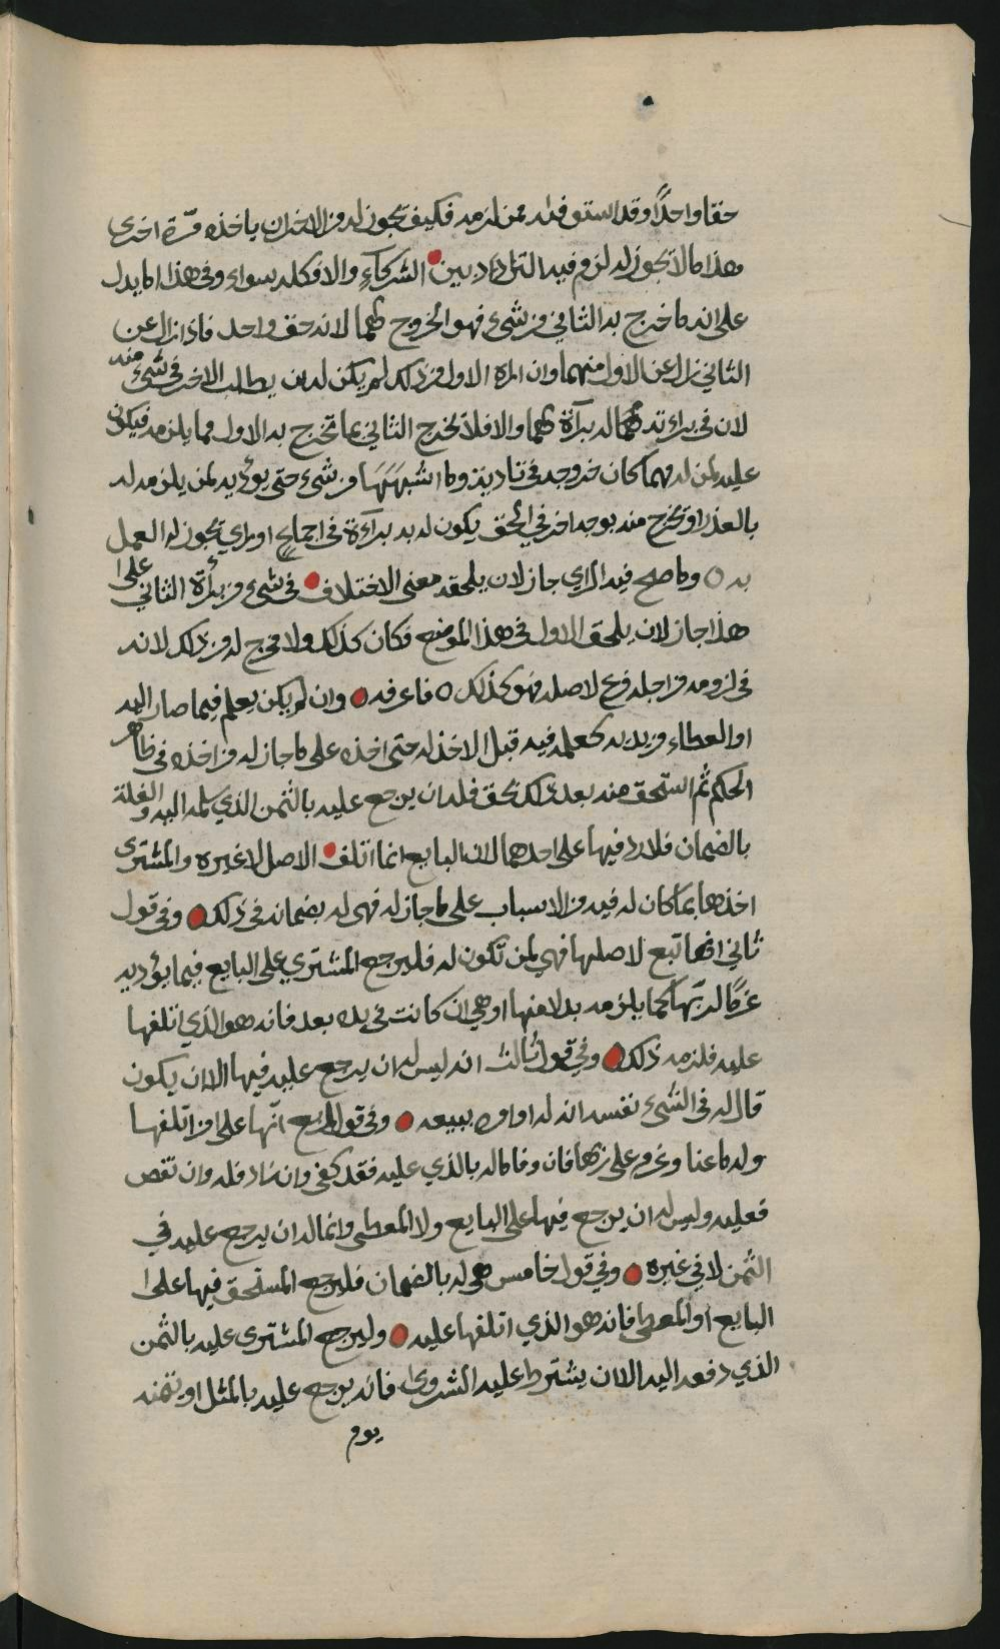 حقا واحدًا وقد استوفاه ممن لزمه فكيف يجوز له من الاخر ان ياخذه مرّة اخرى
هذا مالا يجوز له لزوم فيه التراد بين الشركاء والا فكله سواء وفي هذا ما يدل
على انه ما خرج به الثاني من شيء فهو الخروج لهما لانه حق واحد فاذا زال عن
الثاني زال عن الاول منهما وان ابراه الاول من ذلك لم يكن له ان يطالب الاخر في شيء منه
لان في براءته لهما له براءة لهما والا فلا يخرج الثاني بما تخرج به الاول مما يلزمه فيكون
عليه لمن له مهما كان خروجه في تاديته وما اشبهها من شيء حتى يؤديه لمن يلزمه له
بالعذر او يخرج منه بوجه اخر في الحق يكون له به براءة في اجماع او براي يجوز له العمل
به وما صلح فيه الراي جاز لان يلحقه معنى الاختلاف في شيء من براءة الثاني على
هذا جاز لان يلحق الاول في هذا الموضع فكان كذلك ولا مخرج له من ذلك لانه
في لزومه من اجله فرع لاصله فهو كذلك فاعرفه وان لم يكن يعلم فيما صار اليه
او العطاء من يديه كعلمه فيه قبل الاخذ له حتى اخذه على ما جاز له من اخذه في ظاهر
الحكم ثم استحق منه بعد ذلك بحق فله ان يرجع عليه بالثمن الذي سلمه اليه والغلة
بالضمان فلا رد فيها على احدهما لان البايع انما اتلف الاصل لا غيره والمشترى
اخذها بما كان له فيه من الاسباب على ما جاز له فهى له بضمانه في ذلك وفي قول
ثاني انها تبع لاصلها فهي لمن تكون له فليرجع المشتري على البايع فيما يؤديه
غرمًا لربّها كما يلزمه بدلا عنها او هي ان كانت في يده بعد فانه هو الذي اتلفها
عليه فلزمه ذلك وفي قول ثالث انه ليس له ان يرجع عليه فيها الا ان يكون
قال له في الشيء نفسه انه له او امره ببيعه وفي قول رابع انّها على من اتلفها
وله ما عنا وغرم على ربها فان وفا ماله بالذي عليه فقد كفى وان زاد فله وان نقص
فعليه وليس له ان يرجع فيها على البايع ولا المعطى وانما له ان يرجع عليه في
الثمن لا في غيره وفي قول خامس هي له بالضمان فليرجع المستحق فيها على
البايع او المعطى فانه هو الذي اتلفها عليه وليرجع المشترى عليه بالثمن
الذي دفعه اليه الا ان يشترط عليه الشروى فانه يرجع عليه بالمثل او ثمنه
يوم